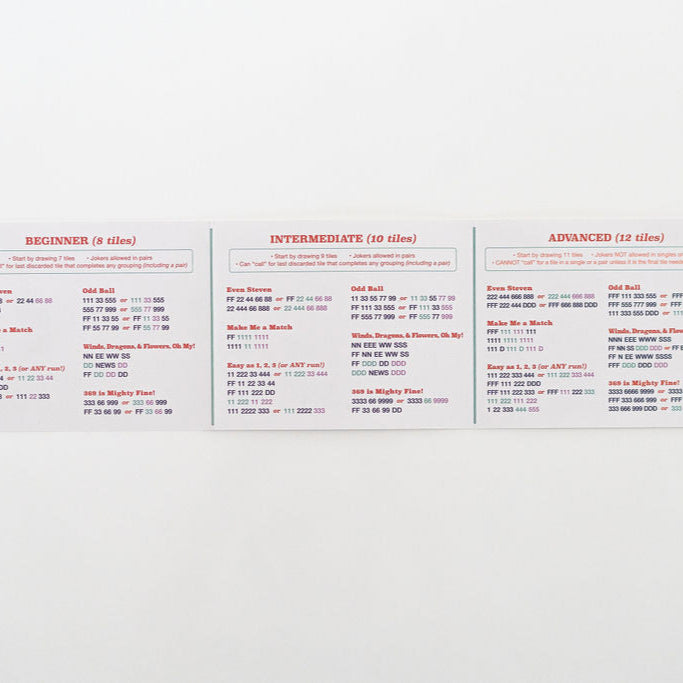 BEGINNER (8 tiles)
• Start by drawing 7 tiles • Jokers allowed in pairs
for last discarded tile that completes any grouping (including a pair)
or 22 44 66 88
Odd Ball
111 33 555 or 111 33 555
555 77 999 or 555 77 999
FF 11 33 55 or FF 11 33 55
FF 55 77 99 or FF 55 77 99
e a Match
Winds, Dragons, & Flowers, Oh My!
NN EE WW SS
DD NEWS DD
FF DD DD DD
, 2, 3 (or ANY run!)
or 11 22 33 44
or 111 22 333
369 is Mighty Fine!
333 66 999 or 333 66 999
FF 33 66 99 or FF 33 66 99
INTERMEDIATE (10 tiles)
• Start by drawing 9 tiles • Jokers allowed in pairs
• Can "call" for last discarded tile that completes any grouping (including a pair)
Even Steven
FF 22 44 66 88 or FF 22 44 66 88
22 444 66 888 or 22 444 66 888
Make Me a Match
FF 1111 1111
1111 11 1111
Easy as 1, 2, 3 (or ANY run!)
11 222 33 444 or 11 222 33 444
FF 11 22 33 44
FF 111 222 DD
11 222 11 222
111 2222 333 or 111 2222 333
Odd Ball
11 33 55 77 99 or 11 33 55 77 99
FF 111 33 555 or FF 111 33 555
FF 555 77 999 or FF 555 77 999
Winds, Dragons, & Flowers, Oh My!
NN EEE WW SSS
FF NN EE WW SS
FF DDD DD DDD
DDD NEWS DDD
369 is Mighty Fine!
3333 66 9999 or 3333 66 9999
FF 33 66 99 DD
ADVANCED (12 tiles)
• Start by drawing 11 tiles • Jokers NOT allowed in singles
• CANNOT "call" for a tile in a single or a pair unless it is the final tile
Even Steven
222 444 666 888 or 222 444 666 888
FFF 222 444 DDD or FFF 666 888 DDD
Make Me a Match
FFF 111 111 111
1111 1111 1111
111 D 111 D 111 D
Easy as 1, 2, 3 (or ANY run!)
111 222 333 444 or 111 222 333 444
FFF 111 222 DDD
FFF 111 222 333 or FFF 111 222 333
111 222 111 222
1 22 333 444 555
Odd Ball
FFF 111 333 555 or FFF
FFF 555 777 999 or FFF
111 333 555 DDD or
Winds, Dragons, &
NNN EEE WWW SSS
FF NN SS DDD DDD or FF
FF N EE WWW SSSS
FFF DDD DDD DDD
369 is Mighty Fine!
3333 6666 9999 or
FFF 333 666 999 or FFF
333 666 999 DDD or